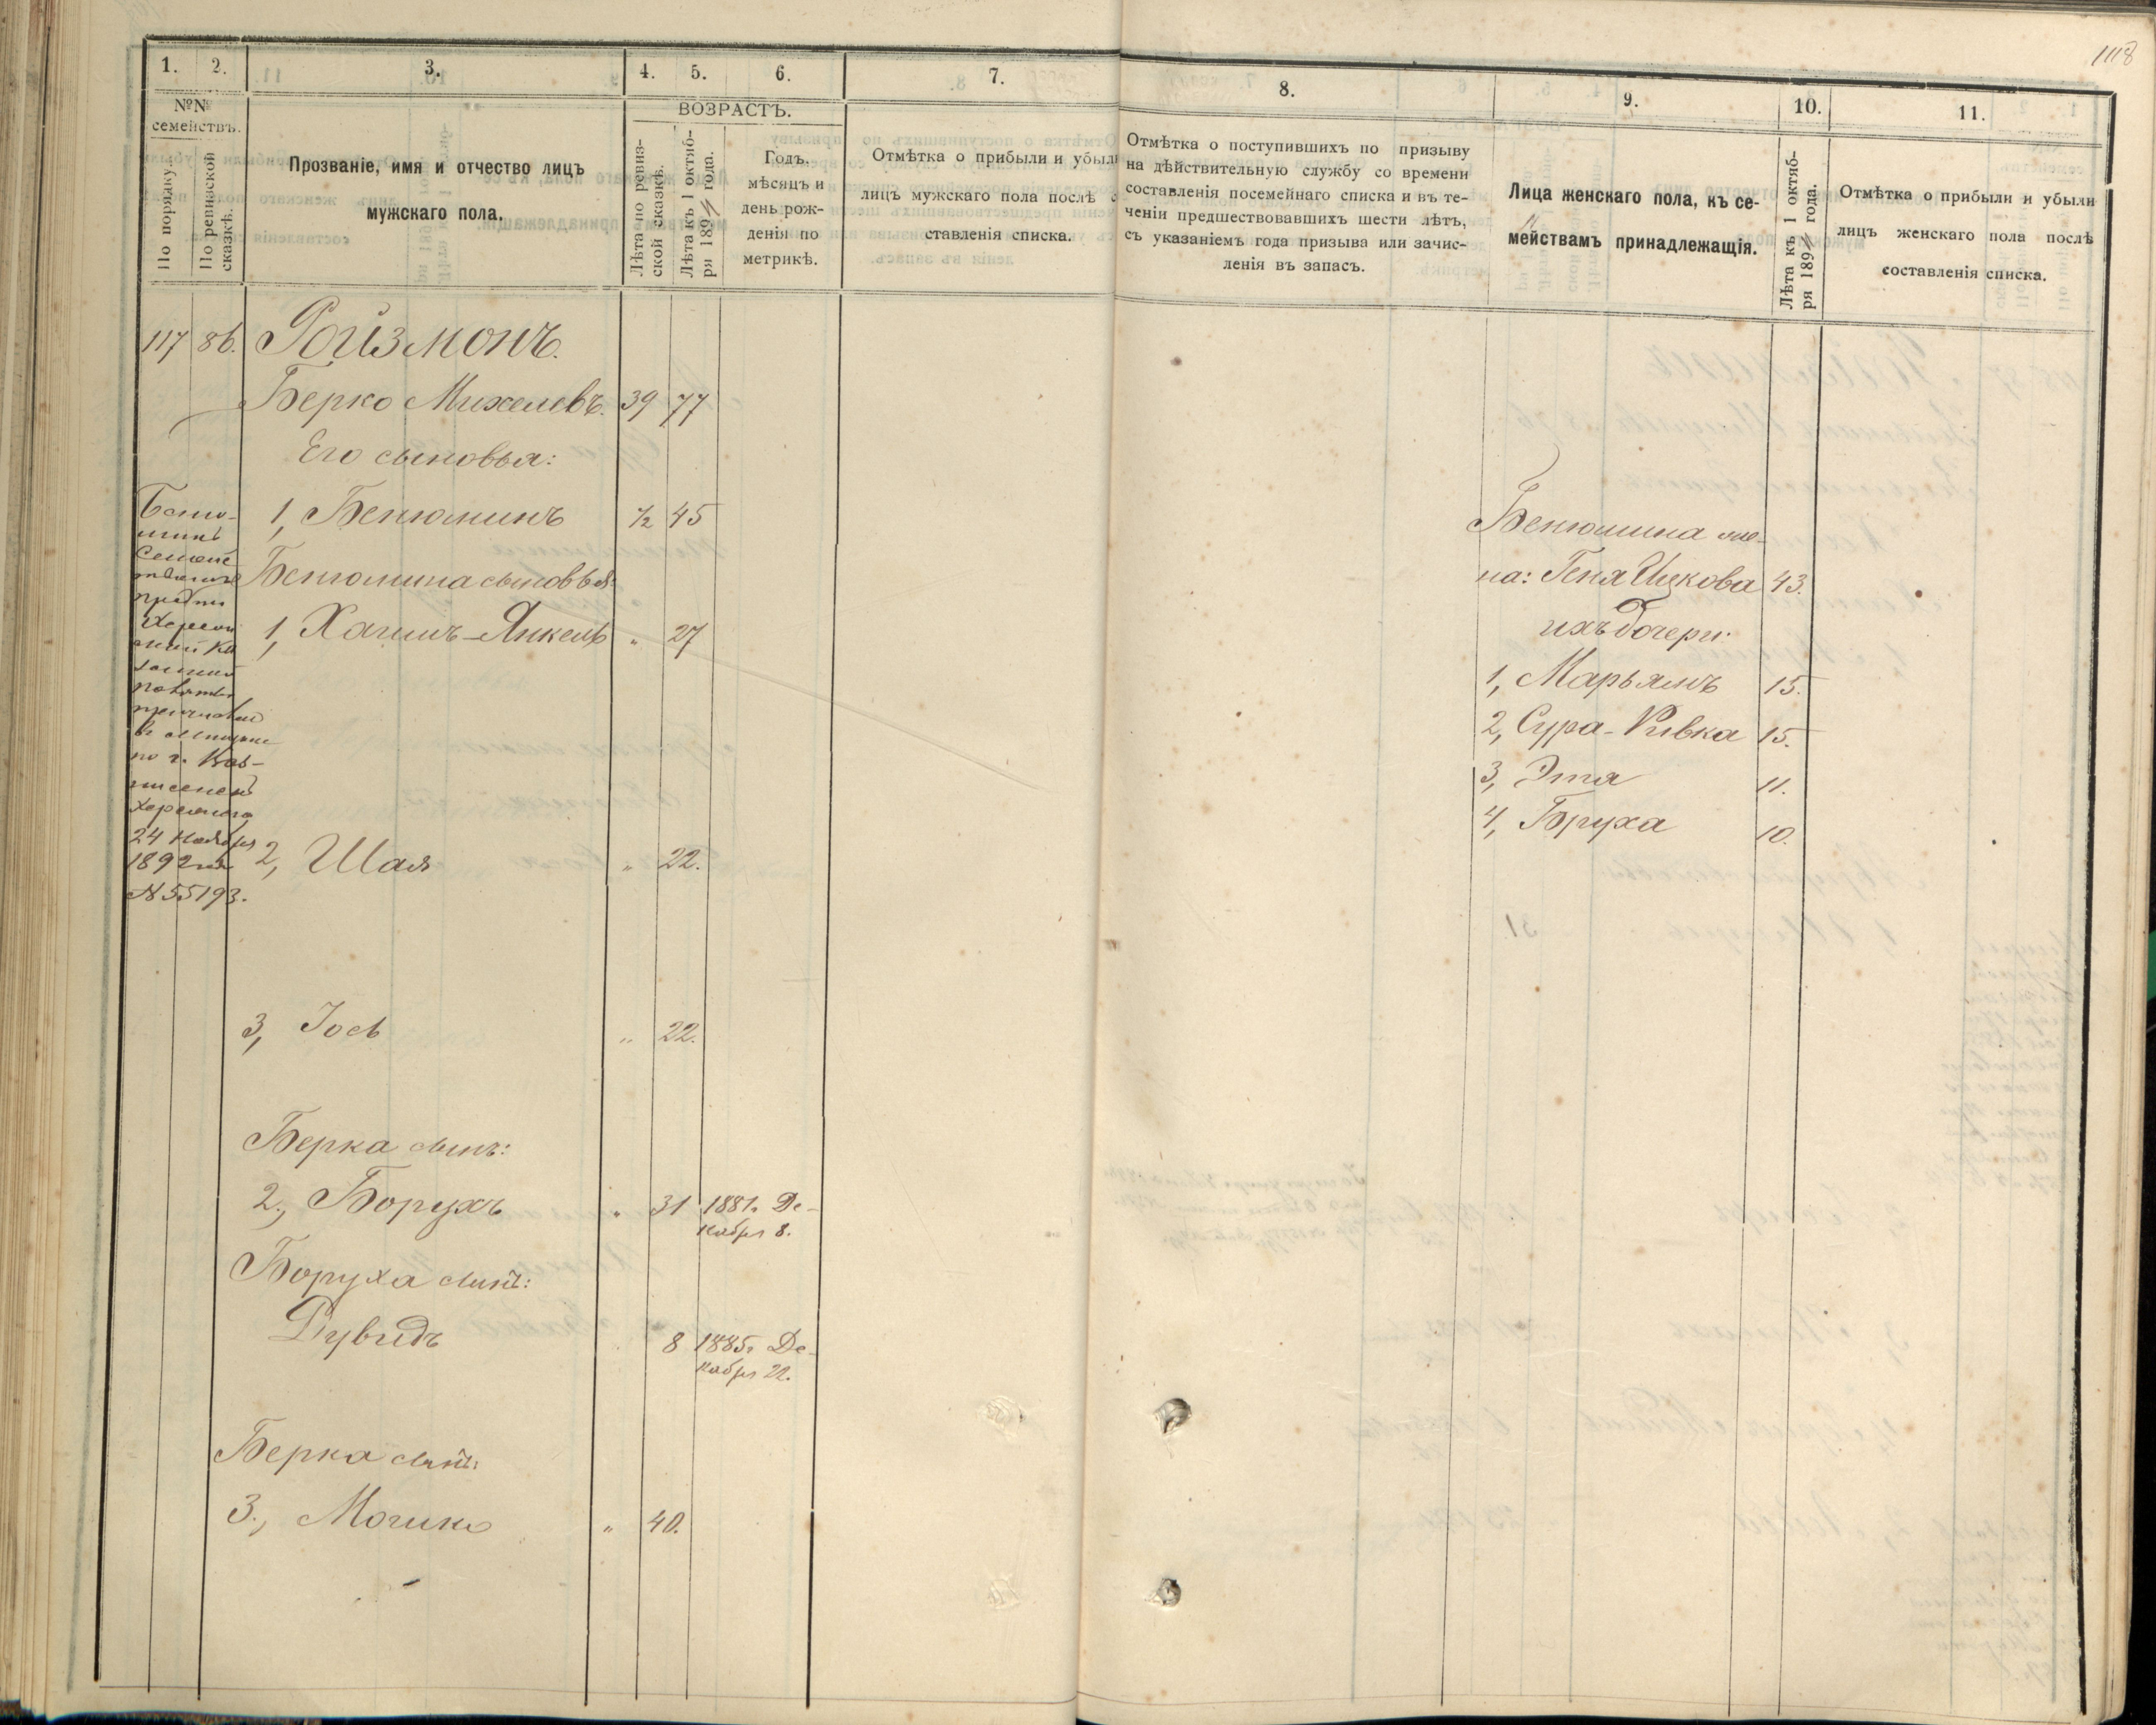 1118
1. 2. 3. 4. 5. 6. 7. 8. 9. 10. 11.
№№ семействъ.
По порядку.
По ревизской сказкѣ.
Прозваніе, имя и отчество лицъ
мужскаго пола.
ВОЗРАСТЪ.
Лѣта по ревиз-
ской сказкѣ.
Лѣта къ 1 октяб-
ря 1894 года.
Годъ,
мѣсяцъ и
день рож-
денія по
метрикѣ.
Отмѣтка о прибыли и убыли
лицъ мужскаго пола послѣ со
ставленія списка.
Отмѣтка о поступившихъ по призыву
на дѣйствительную службу со времени
составленія посемейнаго списка и въ те-
ченіи предшествовавшихъ шести лѣтъ,
съ указаніемъ года призыва или зачис-
ленія въ запасъ.
Лица женскаго пола, къ се-
мействамъ принадлежащія.
Лѣта къ 1 октяб-
ря 1894 года.
Отмѣтка о прибыли и убыли
лицъ женскаго пола послѣ
составленія списка.
117 86. Ройзмонъ.
Берко Михелевъ. 39 77
Его сыновья:
1, Бенюминъ 1/2 45
Бенюмина сыновья:
1, Хаимъ-Янкель " 27
2, Шая " 22.
3, Іось " 22.
Берка сынъ:
2., Борухъ " 31 1881г. Де-
кабря 8.
Боруха сынъ:
Дувидъ " 8 1885г. Де-
кабря 22.
Берка сынъ:
3., Мошко " 40.
по г. Воз-
24 Ноября
1892 года
№ 55193.
Бенюмина же-
на: Геня Ицкова 43.
ихъ дочери:
1, Марьямъ 15.
2, Сура-Ривка 15.
3, Этя 11.
4, Бруха 10.